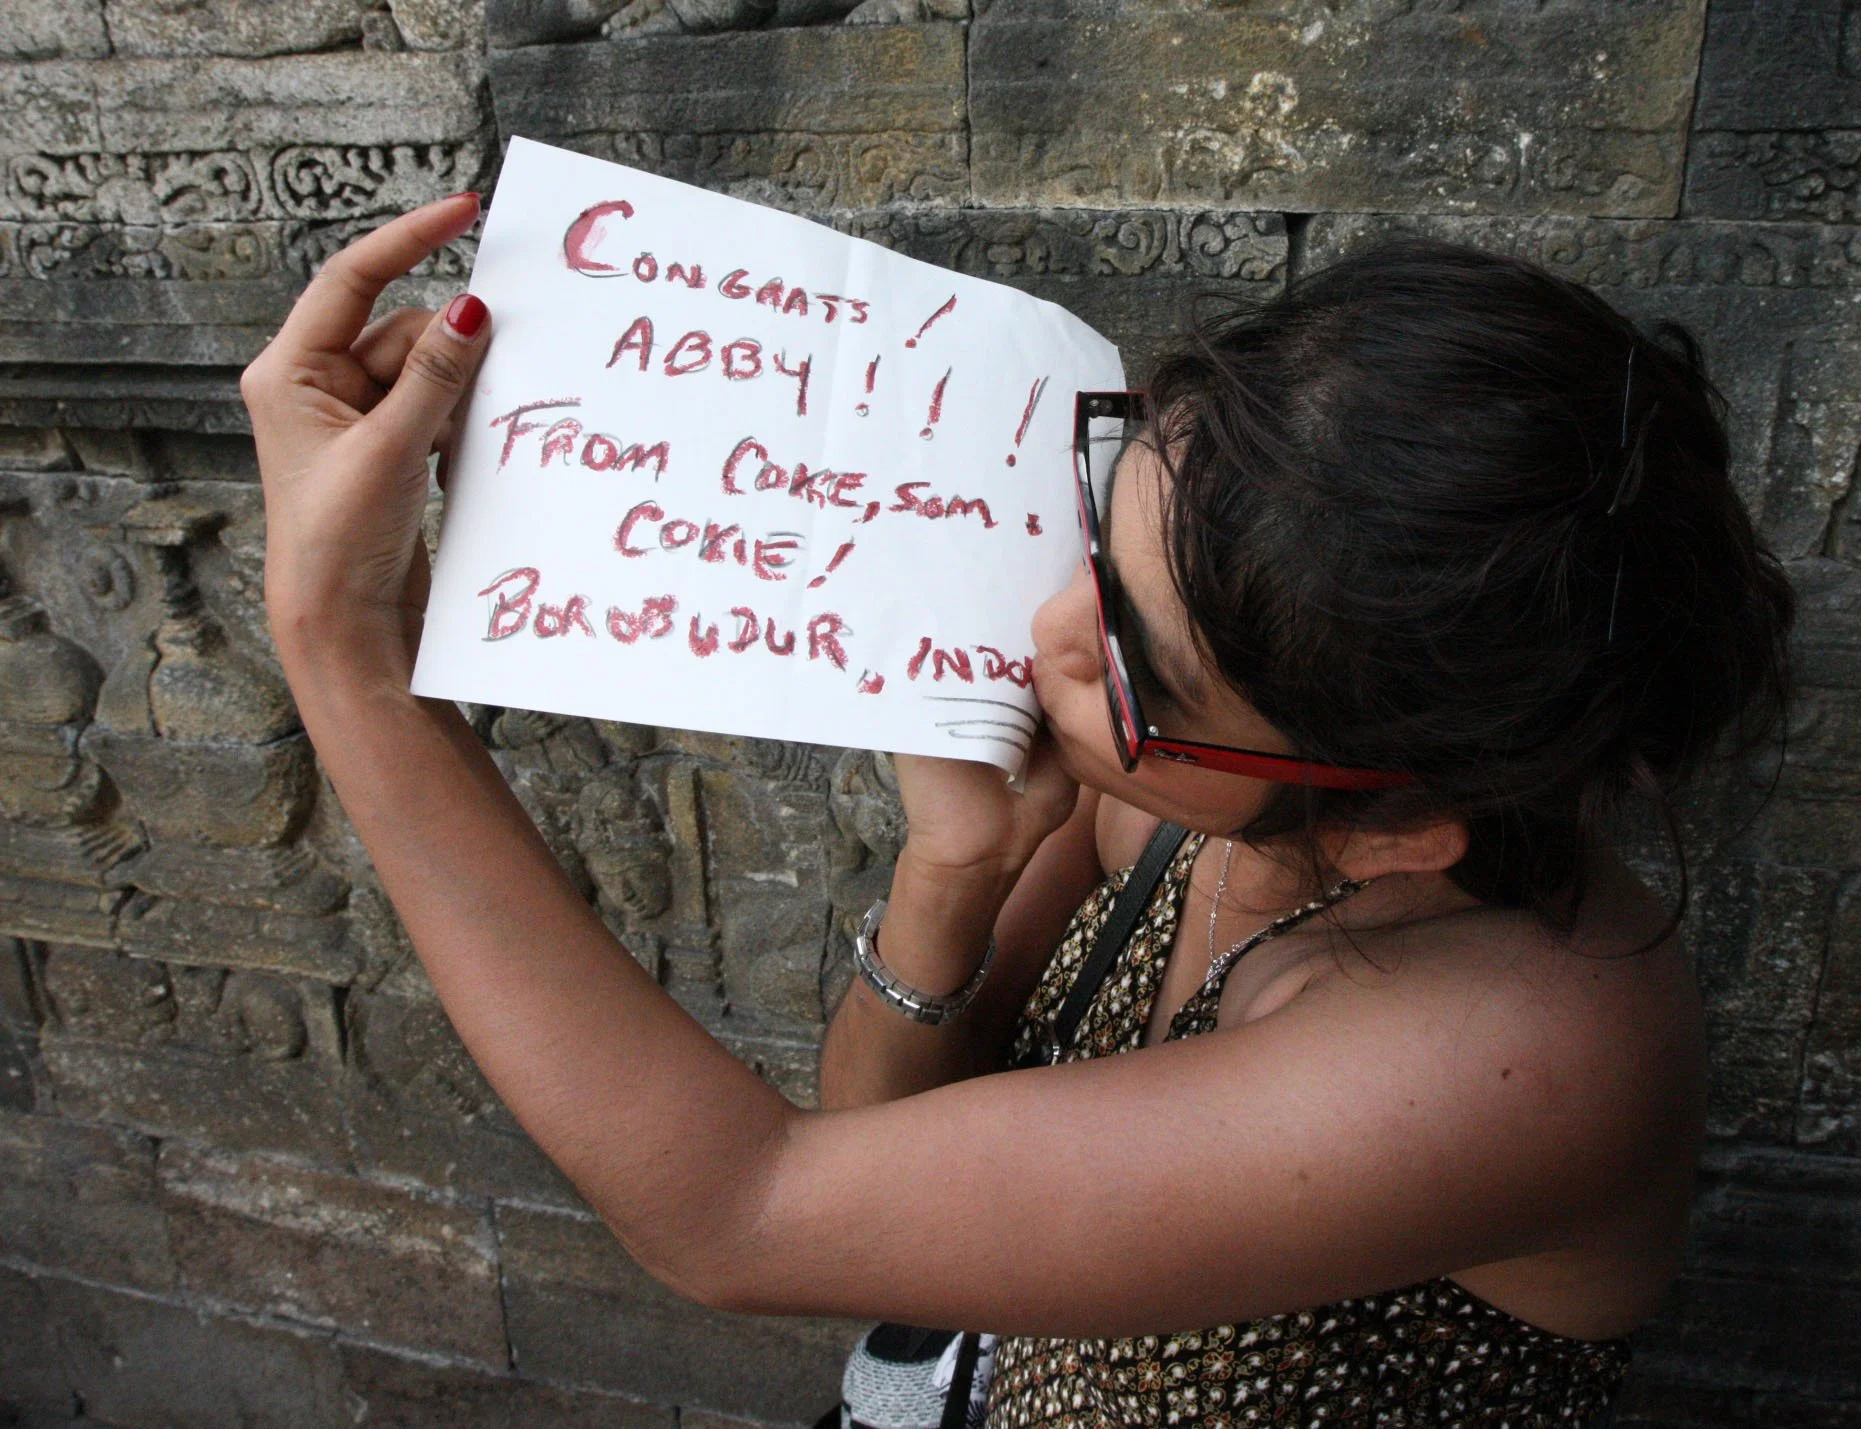 CONGRATS !
ABBY ! ! !
FROM COKE, SOM.
COKIE !
BOROBUDUR. INDO